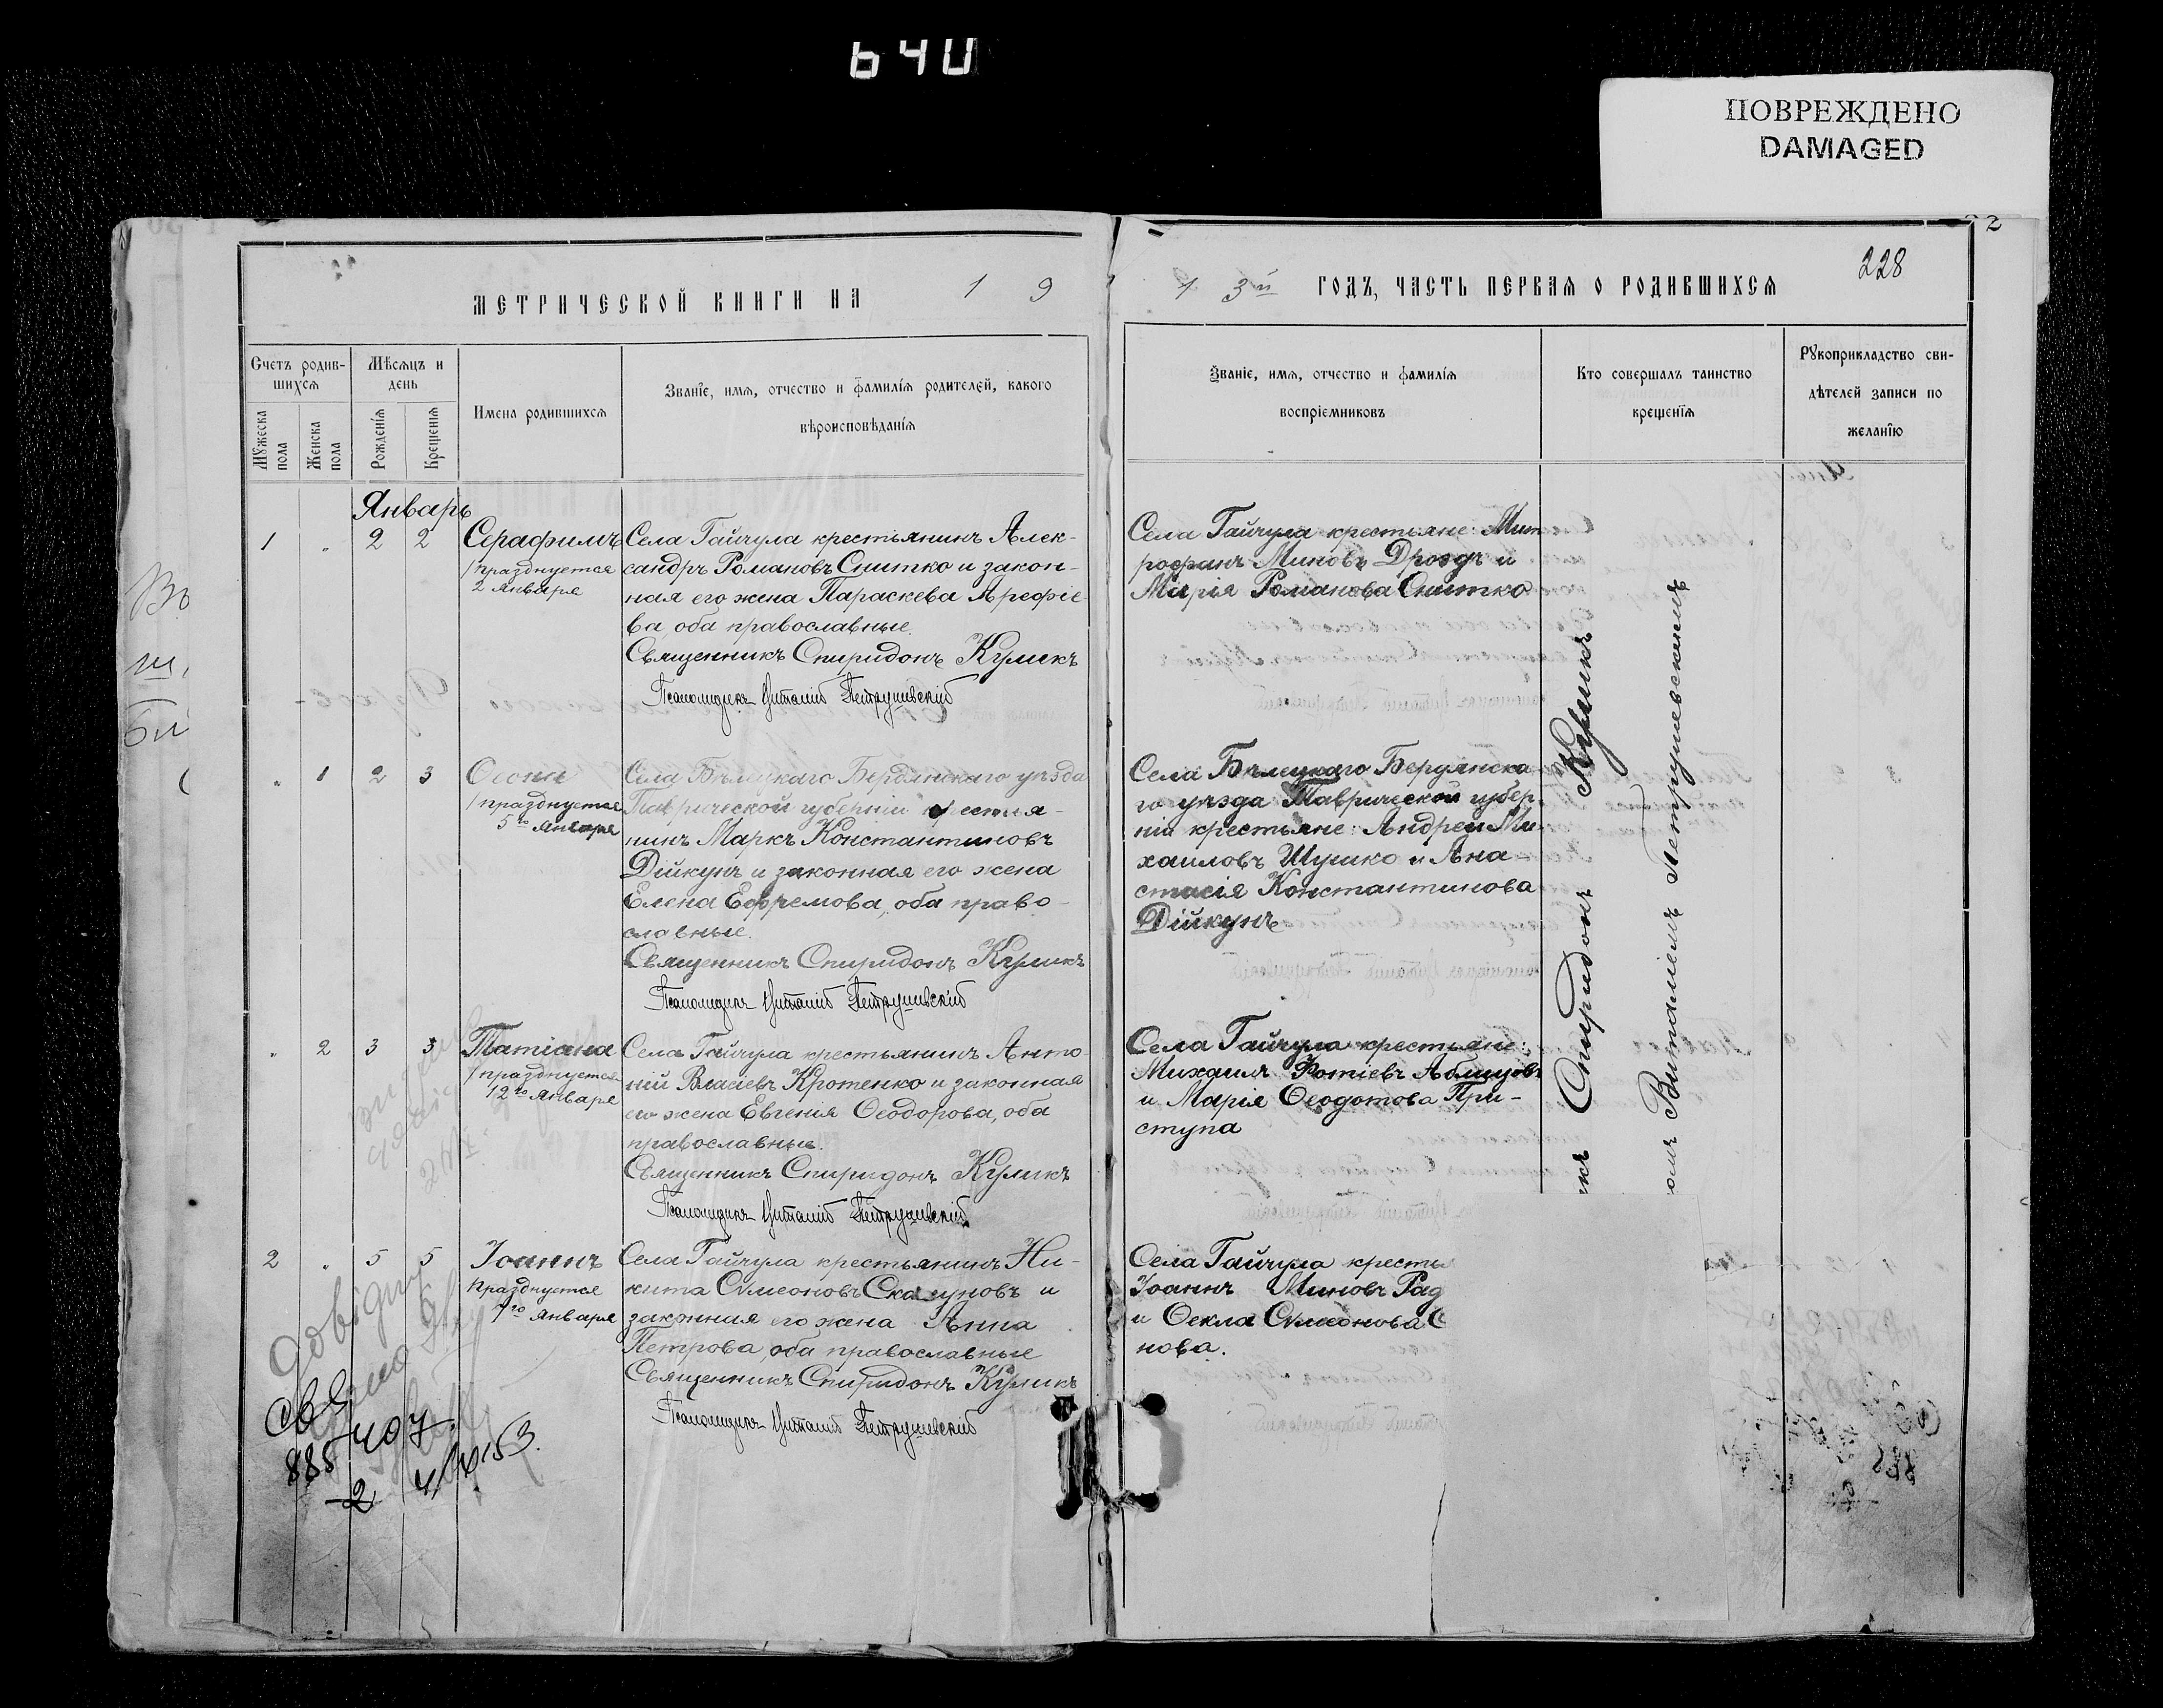 640
ПОВРЕЖДЕНО
DAMAGED
228
МЕТРИЧЕСКОЙ КНИГИ НА 1 9
1 3й ГОДЪ, ЧАСТЬ ПЕРВАЯ О РОДИВШИХСЯ
Счетъ родив-
шихся
Мѣсяцъ и
день
Мужеска
пола
Женска
пола
Рожденія
Крещенія
Имена родившихся
Званіе, имя, отчество и фамилія родителей, какого
вѣроисповѣданія
Званіе, имя, отчество и фамилія
воспріемниковъ
Кто совершалъ таинство
крещенія
Рукоприкладство сви-
дѣтелей записи по
желанію
Январь
1 " 2 2
Серафимъ
/празднуется
2 Января
Села Гайчула крестьянинъ Алек-
сандръ Романовъ Снитко и закон-
ная его жена Параскева Арефіе
ва, оба православные.
Священникъ Спиридонъ Куликъ
Псаломщикъ Виталій Петрушевскій
Села Гайчула крестьяне: Мит
рофанъ Миновъ Дроздъ и
Марія Романова Снитко
" 1 2 3
/празднуется
5го Января
Села Бѣлецкаго Бердянскаго уѣзда
Таврической губерніи крестья-
нинъ Маркъ Константиновъ
Дійкунъ и законная его жена
Елена Ефремова, оба право-
славные.
Священникъ Спиридонъ Куликъ
Псаломщикъ Виталій Петрушевскій
Села Бѣлецкаго Бердянска
го уѣзда Таврической губер
ніи крестьяне: Андрей Ми
хаиловъ Шушко и Ана-
стасія Константинова
Дійкунъ
" 2 3 3
Татіана
/празднуется
12го Января
Села Гайчула крестьянинъ Анто-
ній Власіевъ Кротенко и законная
его жена Евгенія Ѳеодорова, оба
православные.
Священникъ Спиридонъ Куликъ
Псаломщикъ Виталій Петрушевскій
Села Гайчула крестьяне:
Михаилъ Фотіевъ
и Марія Ѳеодотова При-
ступа
2 " 5 5
Іоаннъ
празднуется
7го Января
Села Гайчула крестьянинъ Ни-
кита Сѵмеоновъ Скакуновъ и
законная его жена Анна
Петрова, оба православные
Священникъ Спиридонъ Куликъ
Псаломщикъ Виталій Петрушевскій
Села Гайчула кресть
Іоаннъ Миновъ Рад
и Ѳекла Сѵмеонова С
нова.
икъ Спиридонъ Куликъ
омъ Виталіемъ Петрушевскимъ
885 407